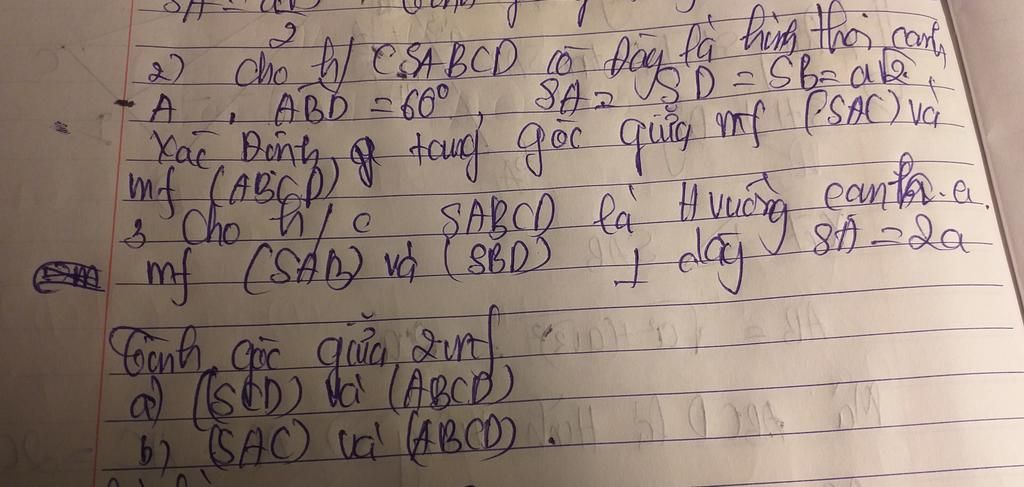 2
2) Cho h/c SABCD có Đáy là hình thoi cạnh
A , ABD = 60°, SA = SD = SB = a√2,
Xác Định, tang góc giữa mf (SAC) và
mf (ABCD)
3 Cho h/c SABCD là H vuông cạnh a.
mf (SAB) và (SBD) ⊥ đáy SA = 2a
Tính góc giữa 2 mf
a) (SCD) và (ABCD)
b) (SAC) và (ABCD).